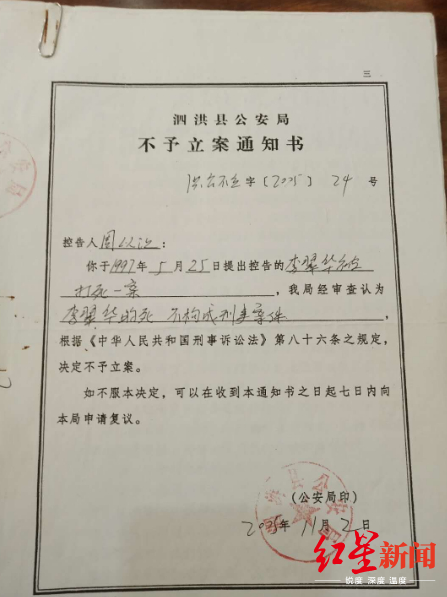 三
泗洪县公安局
不予立案通知书
洪公不立字〔2005〕24号
控告人周以法:
你于1997年5月25日提出控告的李翠华被
打死一案,我局经审查认为
李翠华的死不构成刑事案件,
根据《中华人民共和国刑事诉讼法》第八十六条之规定,
决定不予立案。
如不服本决定,可以在收到本通知书之日起七日内向
本局申请复议。
泗洪县公安局
(公安局印)
2005年11月2日
红星新闻
锐度 深度 温度